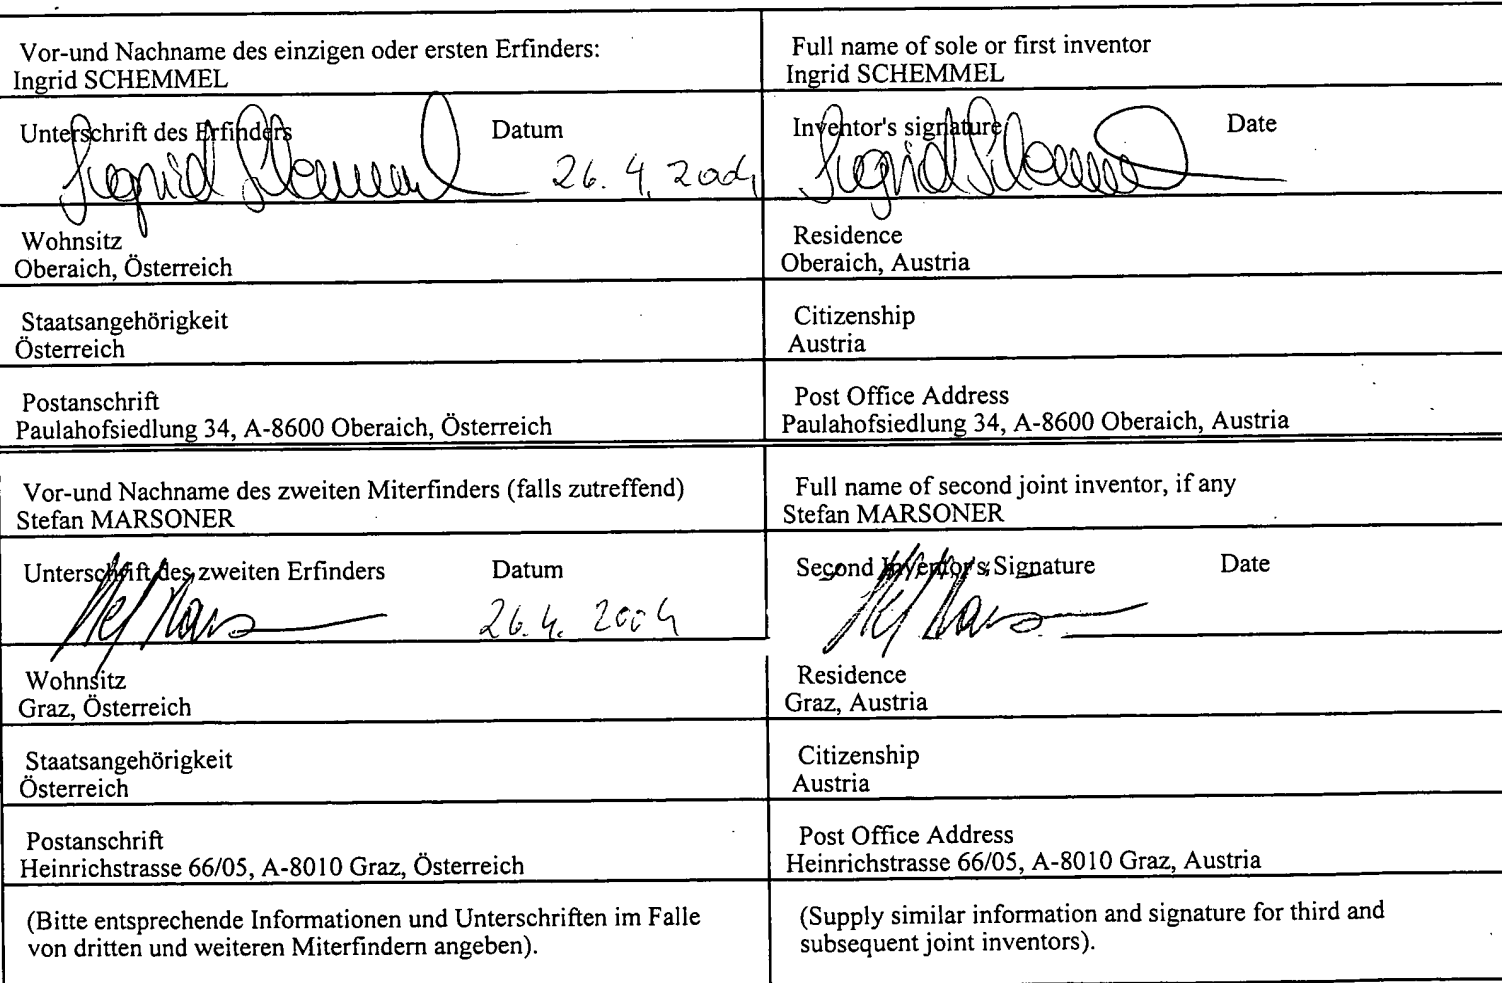 Vor-und Nachname des einzigen oder ersten Erfinders:
Ingrid SCHEMMEL
Full name of sole or first inventor
Ingrid SCHEMMEL
Unterschrift des Erfinders Datum
Ingrid Schemmel 26. 4. 2004
Inventor's signature Date
Ingrid Schemmel
Wohnsitz
Oberaich, Österreich
Residence
Oberaich, Austria
Staatsangehörigkeit
Österreich
Citizenship
Austria
Postanschrift
Paulahofsiedlung 34, A-8600 Oberaich, Österreich
Post Office Address
Paulahofsiedlung 34, A-8600 Oberaich, Austria
Vor-und Nachname des zweiten Miterfinders (falls zutreffend)
Stefan MARSONER
Full name of second joint inventor, if any
Stefan MARSONER
Unterschrift des zweiten Erfinders Datum
26.4. 2004
Second Inventor's Signature Date
Wohnsitz
Graz, Österreich
Residence
Graz, Austria
Staatsangehörigkeit
Österreich
Citizenship
Austria
Postanschrift
Heinrichstrasse 66/05, A-8010 Graz, Österreich
Post Office Address
Heinrichstrasse 66/05, A-8010 Graz, Austria
(Bitte entsprechende Informationen und Unterschriften im Falle
von dritten und weiteren Miterfindern angeben).
(Supply similar information and signature for third and
subsequent joint inventors).